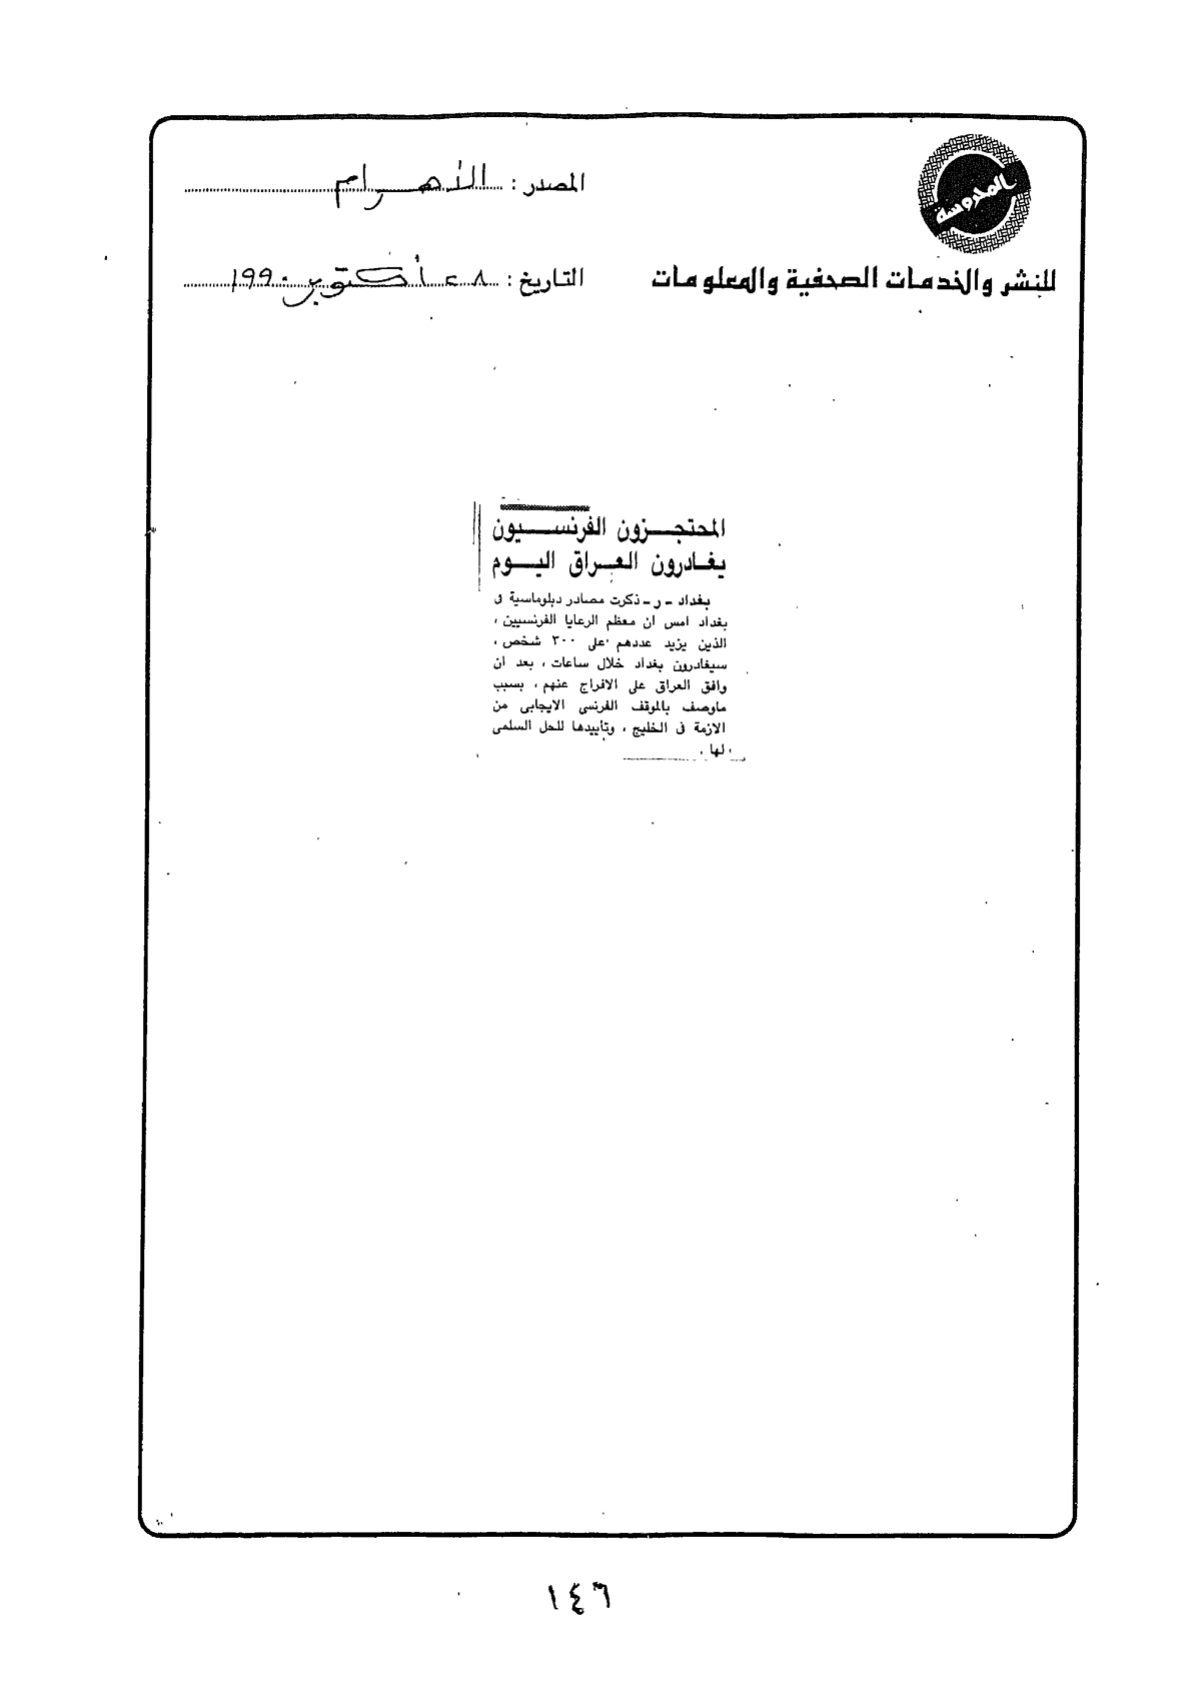 المصدر : الأهرام
المحروسة
للنشر والخدمات الصحفية والمعلومات
التاريخ : ٢٨ أكتوبر ١٩٩٠
المحتجزون الفرنسيون
يغادرون العراق اليوم
بغداد - ر - ذكرت مصادر دبلوماسية فى
بغداد امس ان معظم الرعايا الفرنسيين ،
الذين يزيد عددهم على ٣٠٠ شخص ،
سيغادرون بغداد خلال ساعات ، بعد ان
وافق العراق على الافراج عنهم ، بسبب
ماوصف بالموقف الفرنسى الايجابى من
الازمة فى الخليج ، وتأييدها للحل السلمى
لها .
١٤٦